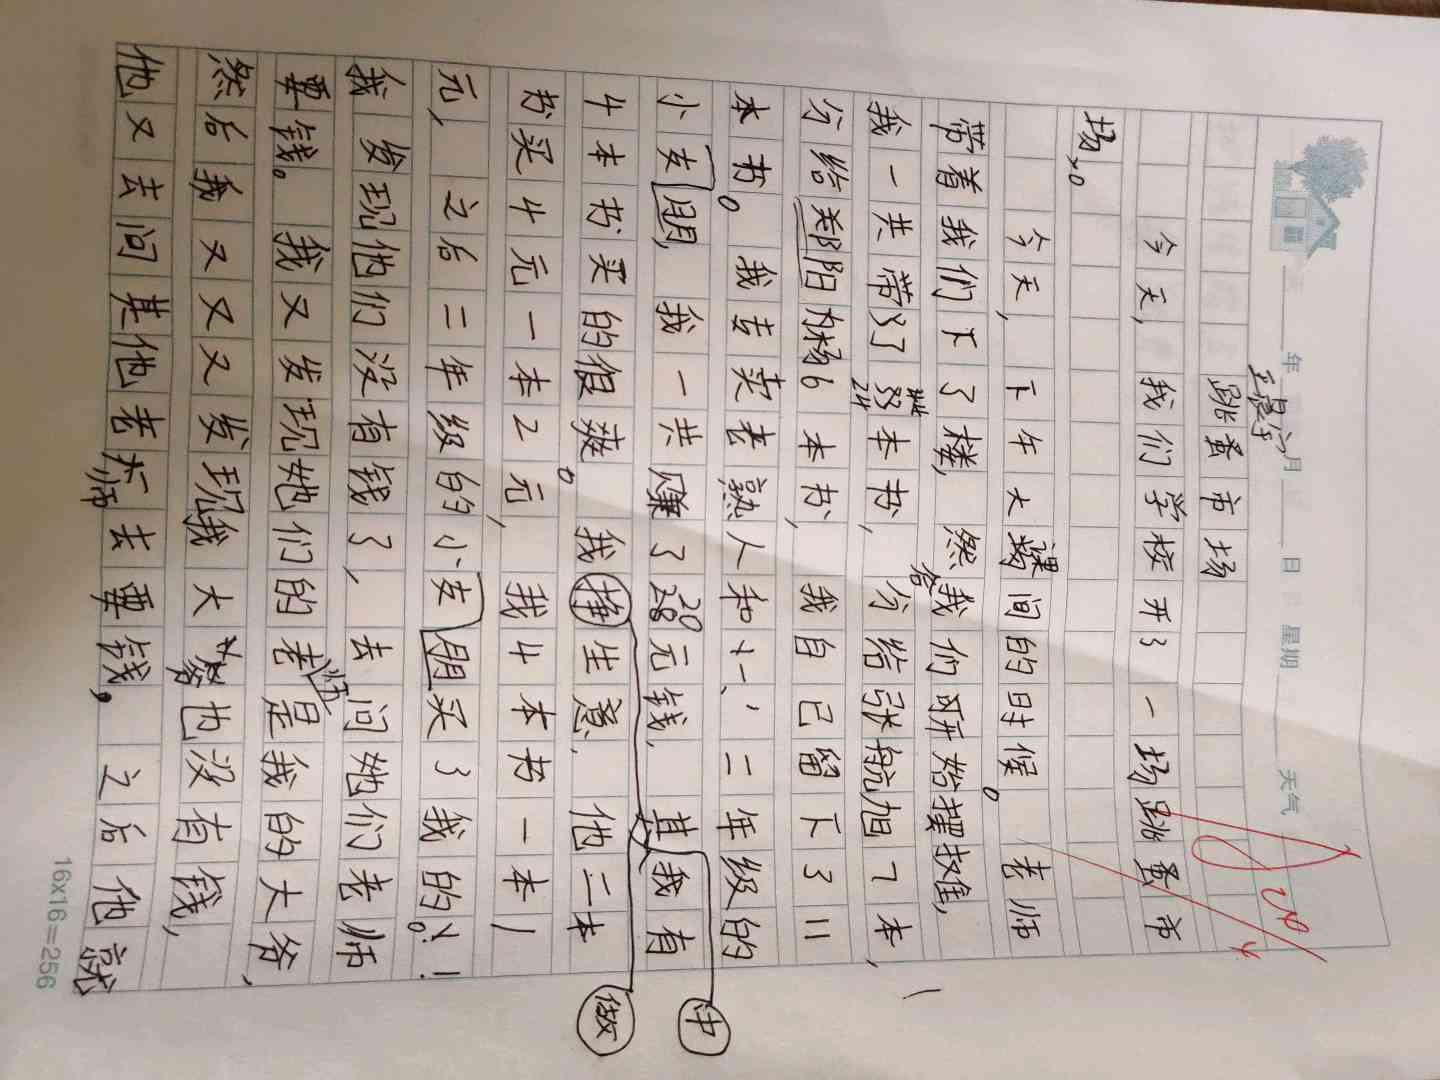 年 月 日 星期 天气
跳蚤市场
今天,我们学校开了一场跳蚤市
场。
今天,下午大课间的时候。老师
带着我们下了楼,然后我们开始摆摊,
我一共带了24本书,分给张航旭7本,
分给郑阳杨6本书,我自己留下了11
本书。我去卖老熟人和一、二年级的
小友朋,我一共赚了20元钱,其我有
中
4本书买的很爽。我挣生意,他二本
做
书买4元一本2元,我4本书一本1
元,之后二年级的小友朋买了我的!
我发现他们没有钱了,去问她们老师
要钱。我又发现她们的老师是我的大爷,
然后我又又又发现我大爷也没有钱,
他又去问其他老师去要钱,之后他就
16x16=256